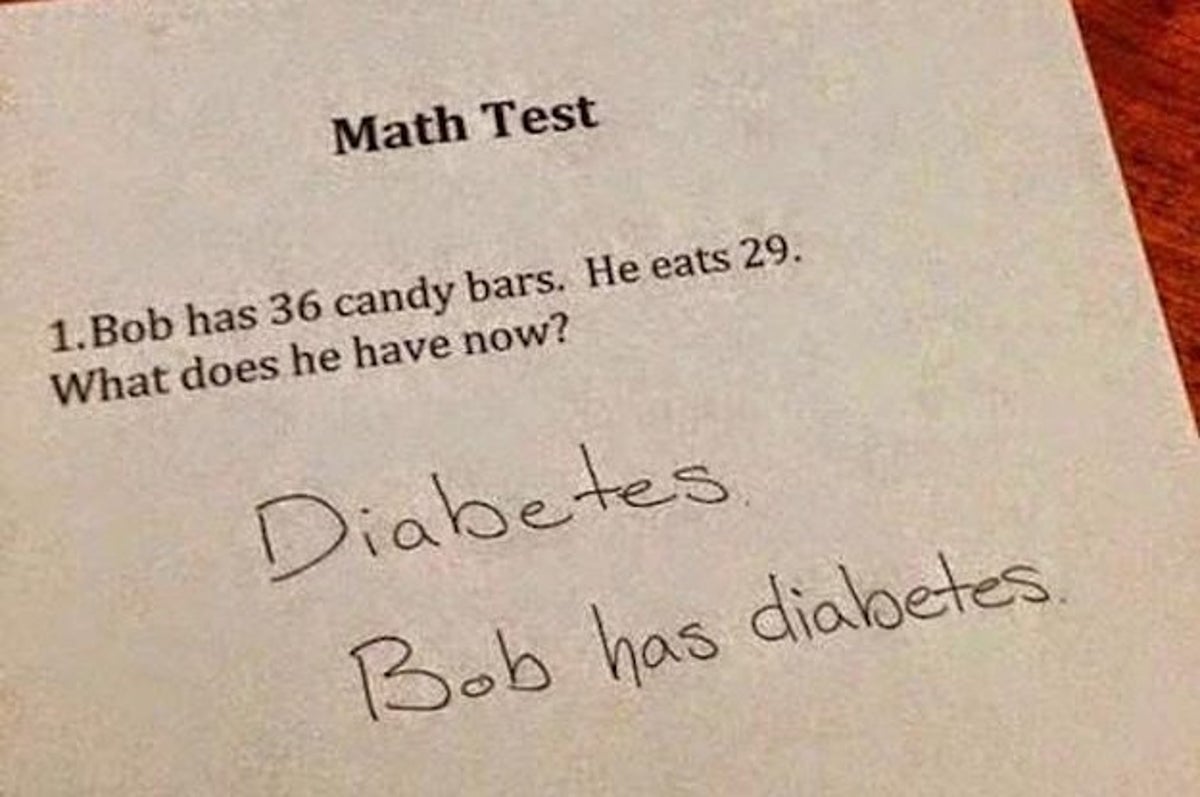 Math Test
1.Bob has 36 candy bars. He eats 29.
What does he have now?
Diabetes.
Bob has diabetes.